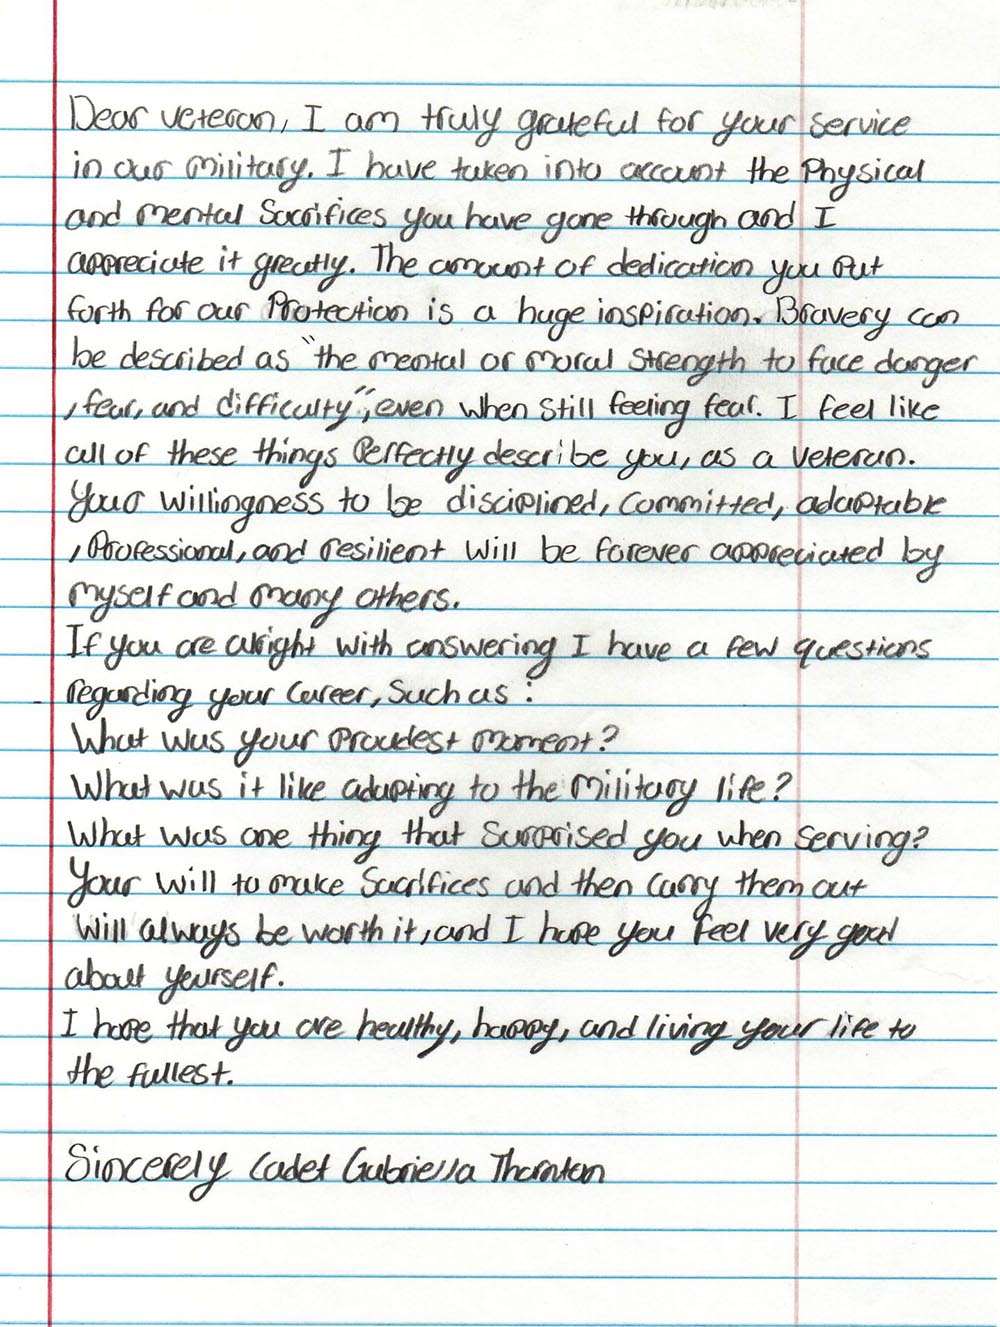 Dear veteran, I am truly grateful for your service
in our military. I have taken into account the Physical
and mental Sacrifices you have gone through and I
appreciate it greatly. The amount of dedication you put
forth for our Protection is a huge inspiration. Bravery can
be described as "the mental or moral strength to face danger
, fear, and difficulty", even when still feeling fear. I feel like
all of these things Perfectly describe you, as a veteran.
Your willingness to be disciplined, committed, adaptable
, Professional, and resilient will be forever appreciated by
myself and many others.
If you are alright with answering I have a few questions
regarding your career, such as :
What was your proudest moment?
What was it like adapting to the military life?
What was one thing that surprised you when serving?
Your will to make Sacrifices and then carry them out
will always be worth it, and I hope you feel very good
about yourself.
I hope that you are healthy, happy, and living your life to
the fullest.
Sincerely Cadet Gabriella Thornton